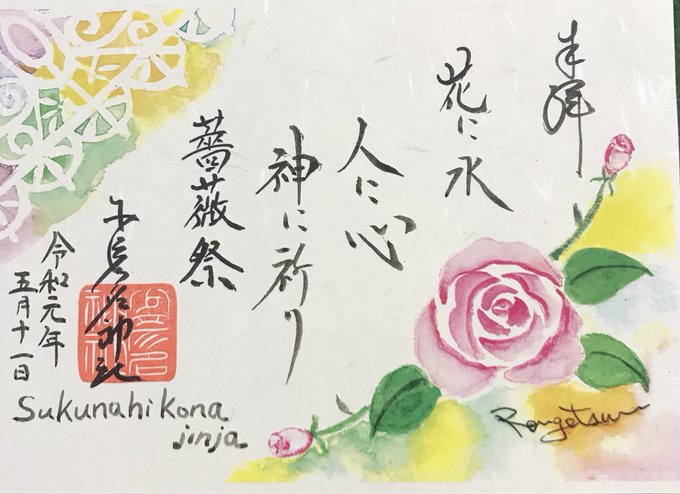 奉拝
花に水
人に心
神に祈り
薔薇祭
少彦名神社
令和元年
五月十一日
Sukunahikona
jinja